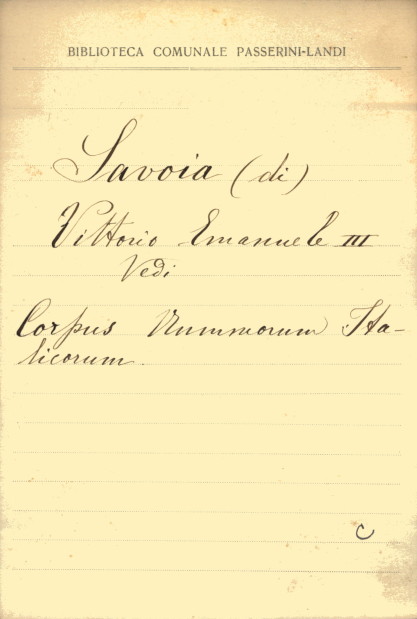 BIBLIOTECA COMUNALE PASSERINI-LANDI
Savoia (di)
Vittorio Emanuele III
Vedi
Corpus Nummorum Ita-
licorum.
C